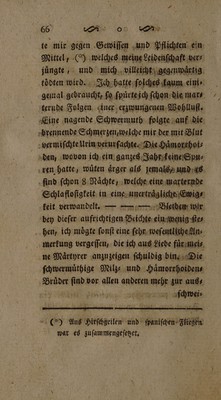 66
te mir gegen Gewissen und Pflichten ein
Mittel, (*) welches meine Leidenschaft ver-
zückte, und mich vielleicht gegenwärtig
tödten wird. Ich hatte solches kaum eini-
gemal gebraucht, so spürte ich schon die mar-
ternde Folgen einer erzwungenen Wohllust.
Eine nagende Schwermuth folgte auf die
brennende Schmerzen, welche mir der mit Blut
vermischte Urin verursachte. Die Hämorrhoi-
den, wovon ich ein ganzes Jahr keine Spu-
ren hatte, wüten ärger als jemals, und es
sind schon 8 Nächte, welche eine marternde
Schlaflosigkeit in eine unerträgliche Ewig-
keit verwandelt. — — — Bleiben wir
bey dieser aufrichtigen Beichte ein wenig ste-
hen, ich mögte sonst eine sehr wesentliche An-
merkung vergessen, die ich aus Liebe für mei-
ne Märtyrer anzuzeigen schuldig bin. Die
schwermüthige Milz- und Hämorrhoiden-
Brüder sind vor allen anderen mehr zur aus-
schwei-
(*) Aus Hirschgeilen und spanischen Fliegen
war es zusammengesetzet.